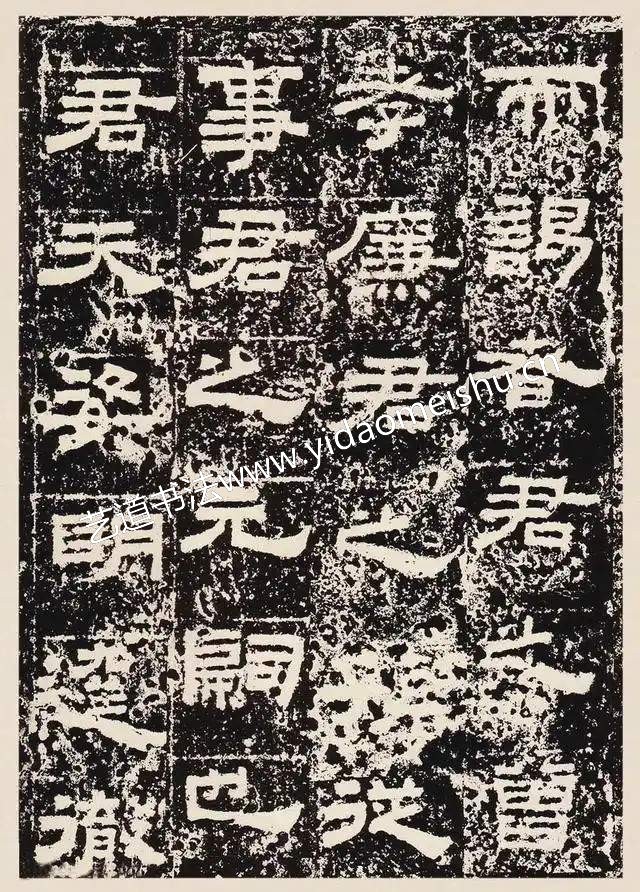 而謁者君之曾
孝廉君之孫從
事君之元嗣也
君天姿明達徹
艺道书法www.yidaomeishu.cn